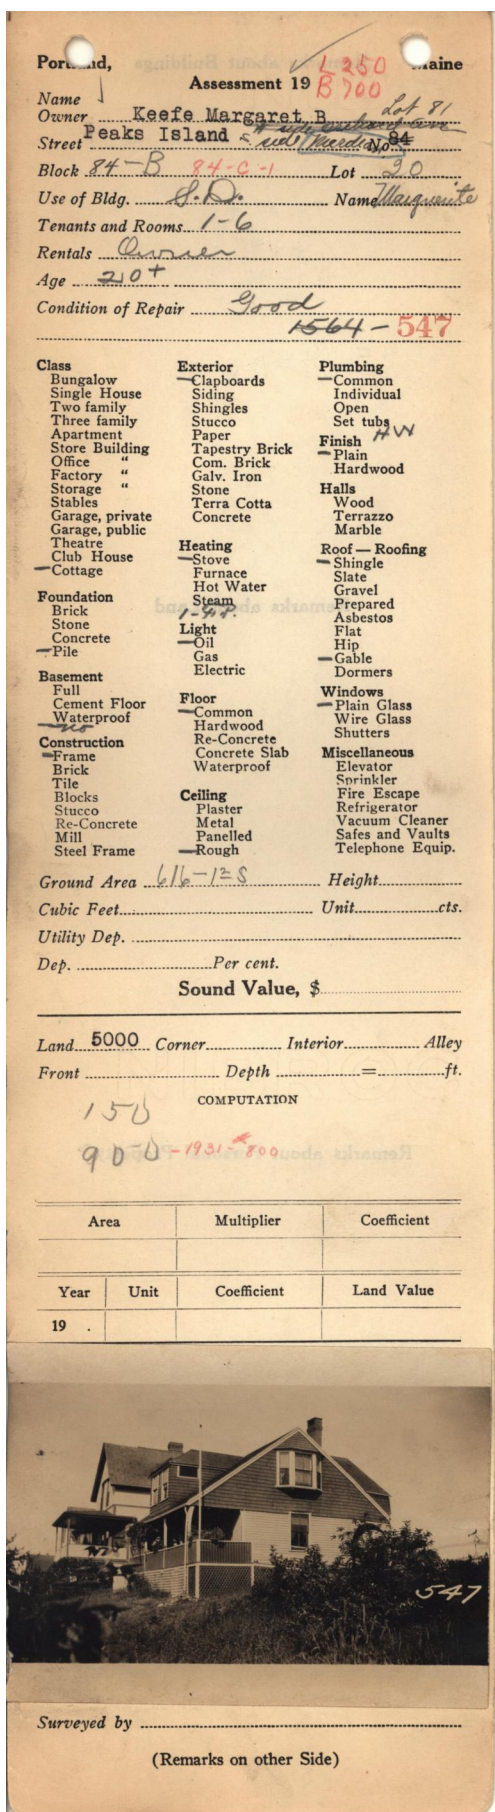 Portland, Maine
L 250
Assessment 19 B 700
Name
Lot 81
Owner Keefe Margaret B
Street Peaks Island side No. 84
Block 84-B 84-C-1 Lot 20
Use of Bldg. S.D. Name Marguerite
Tenants and Rooms 1-6
Rentals Owner
Age 20+
Condition of Repair Good
1564 - 547
Class
Bungalow
Single House
Two family
Three family
Apartment
Store Building
Office "
Factory "
Storage "
Stables
Garage, private
Garage, public
Theatre
Club House
Cottage
Foundation
Brick
Stone
Concrete
Pile
Basement
Full
Cement Floor
Waterproof
no
Construction
Frame
Brick
Tile
Blocks
Stucco
Re-Concrete
Mill
Steel Frame
Exterior
Clapboards
Siding
Shingles
Stucco
Paper
Tapestry Brick
Com. Brick
Galv. Iron
Stone
Terra Cotta
Concrete
Heating
Stove
Furnace
Hot Water
Steam
1-F.P.
Light
Oil
Gas
Electric
Floor
Common
Hardwood
Re-Concrete
Concrete Slab
Waterproof
Ceiling
Plaster
Metal
Panelled
Rough
Plumbing
Common
Individual
Open
Set tubs
Finish HW
Plain
Hardwood
Halls
Wood
Terrazzo
Marble
Roof — Roofing
Shingle
Slate
Gravel
Prepared
Asbestos
Flat
Hip
Gable
Dormers
Windows
Plain Glass
Wire Glass
Shutters
Miscellaneous
Elevator
Sprinkler
Fire Escape
Refrigerator
Vacuum Cleaner
Safes and Vaults
Telephone Equip.
Ground Area 616-1 2 S Height
Cubic Feet Unit cts.
Utility Dep.
Dep. Per cent.
Sound Value, $
Land 5000 Corner Interior Alley
Front Depth = ft.
COMPUTATION
150
900 - 1931 - 800
Area Multiplier Coefficient
Year Unit Coefficient Land Value
19 .
547
Surveyed by
(Remarks on other Side)